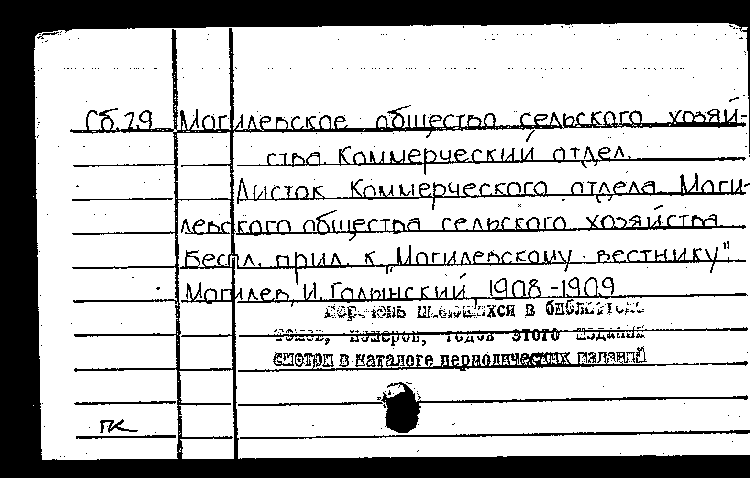 Сб.79 Могилевское общество сельского хозяй-
ства. Коммерческий отдел.
Листок Коммерческого отдела Моги-
левского общества сельского хозяйства
Беспл. прил. к „Могилевскому вестнику"
Могилев, И. Голынский, 1908-1909
Перечень имеющихся в библиотеке
томов, номеров, годов этого издания
смотри в каталоге периодических изданий
ПК